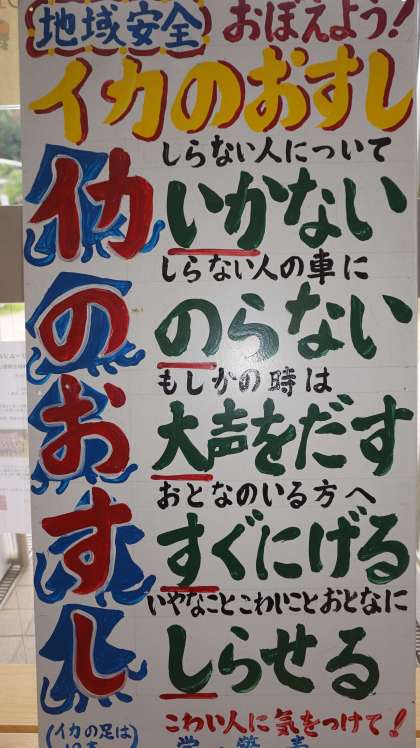 地域安全 おぼえよう!
イカのおすし
しらない人について
イカ いかない
しらない人の車に
の のらない
もしかの時は
お 大声をだす
おとなのいる方へ
す すぐにげる
いやなことこわいことおとなに
し しらせる
(イカの足は こわい人に気をつけて!